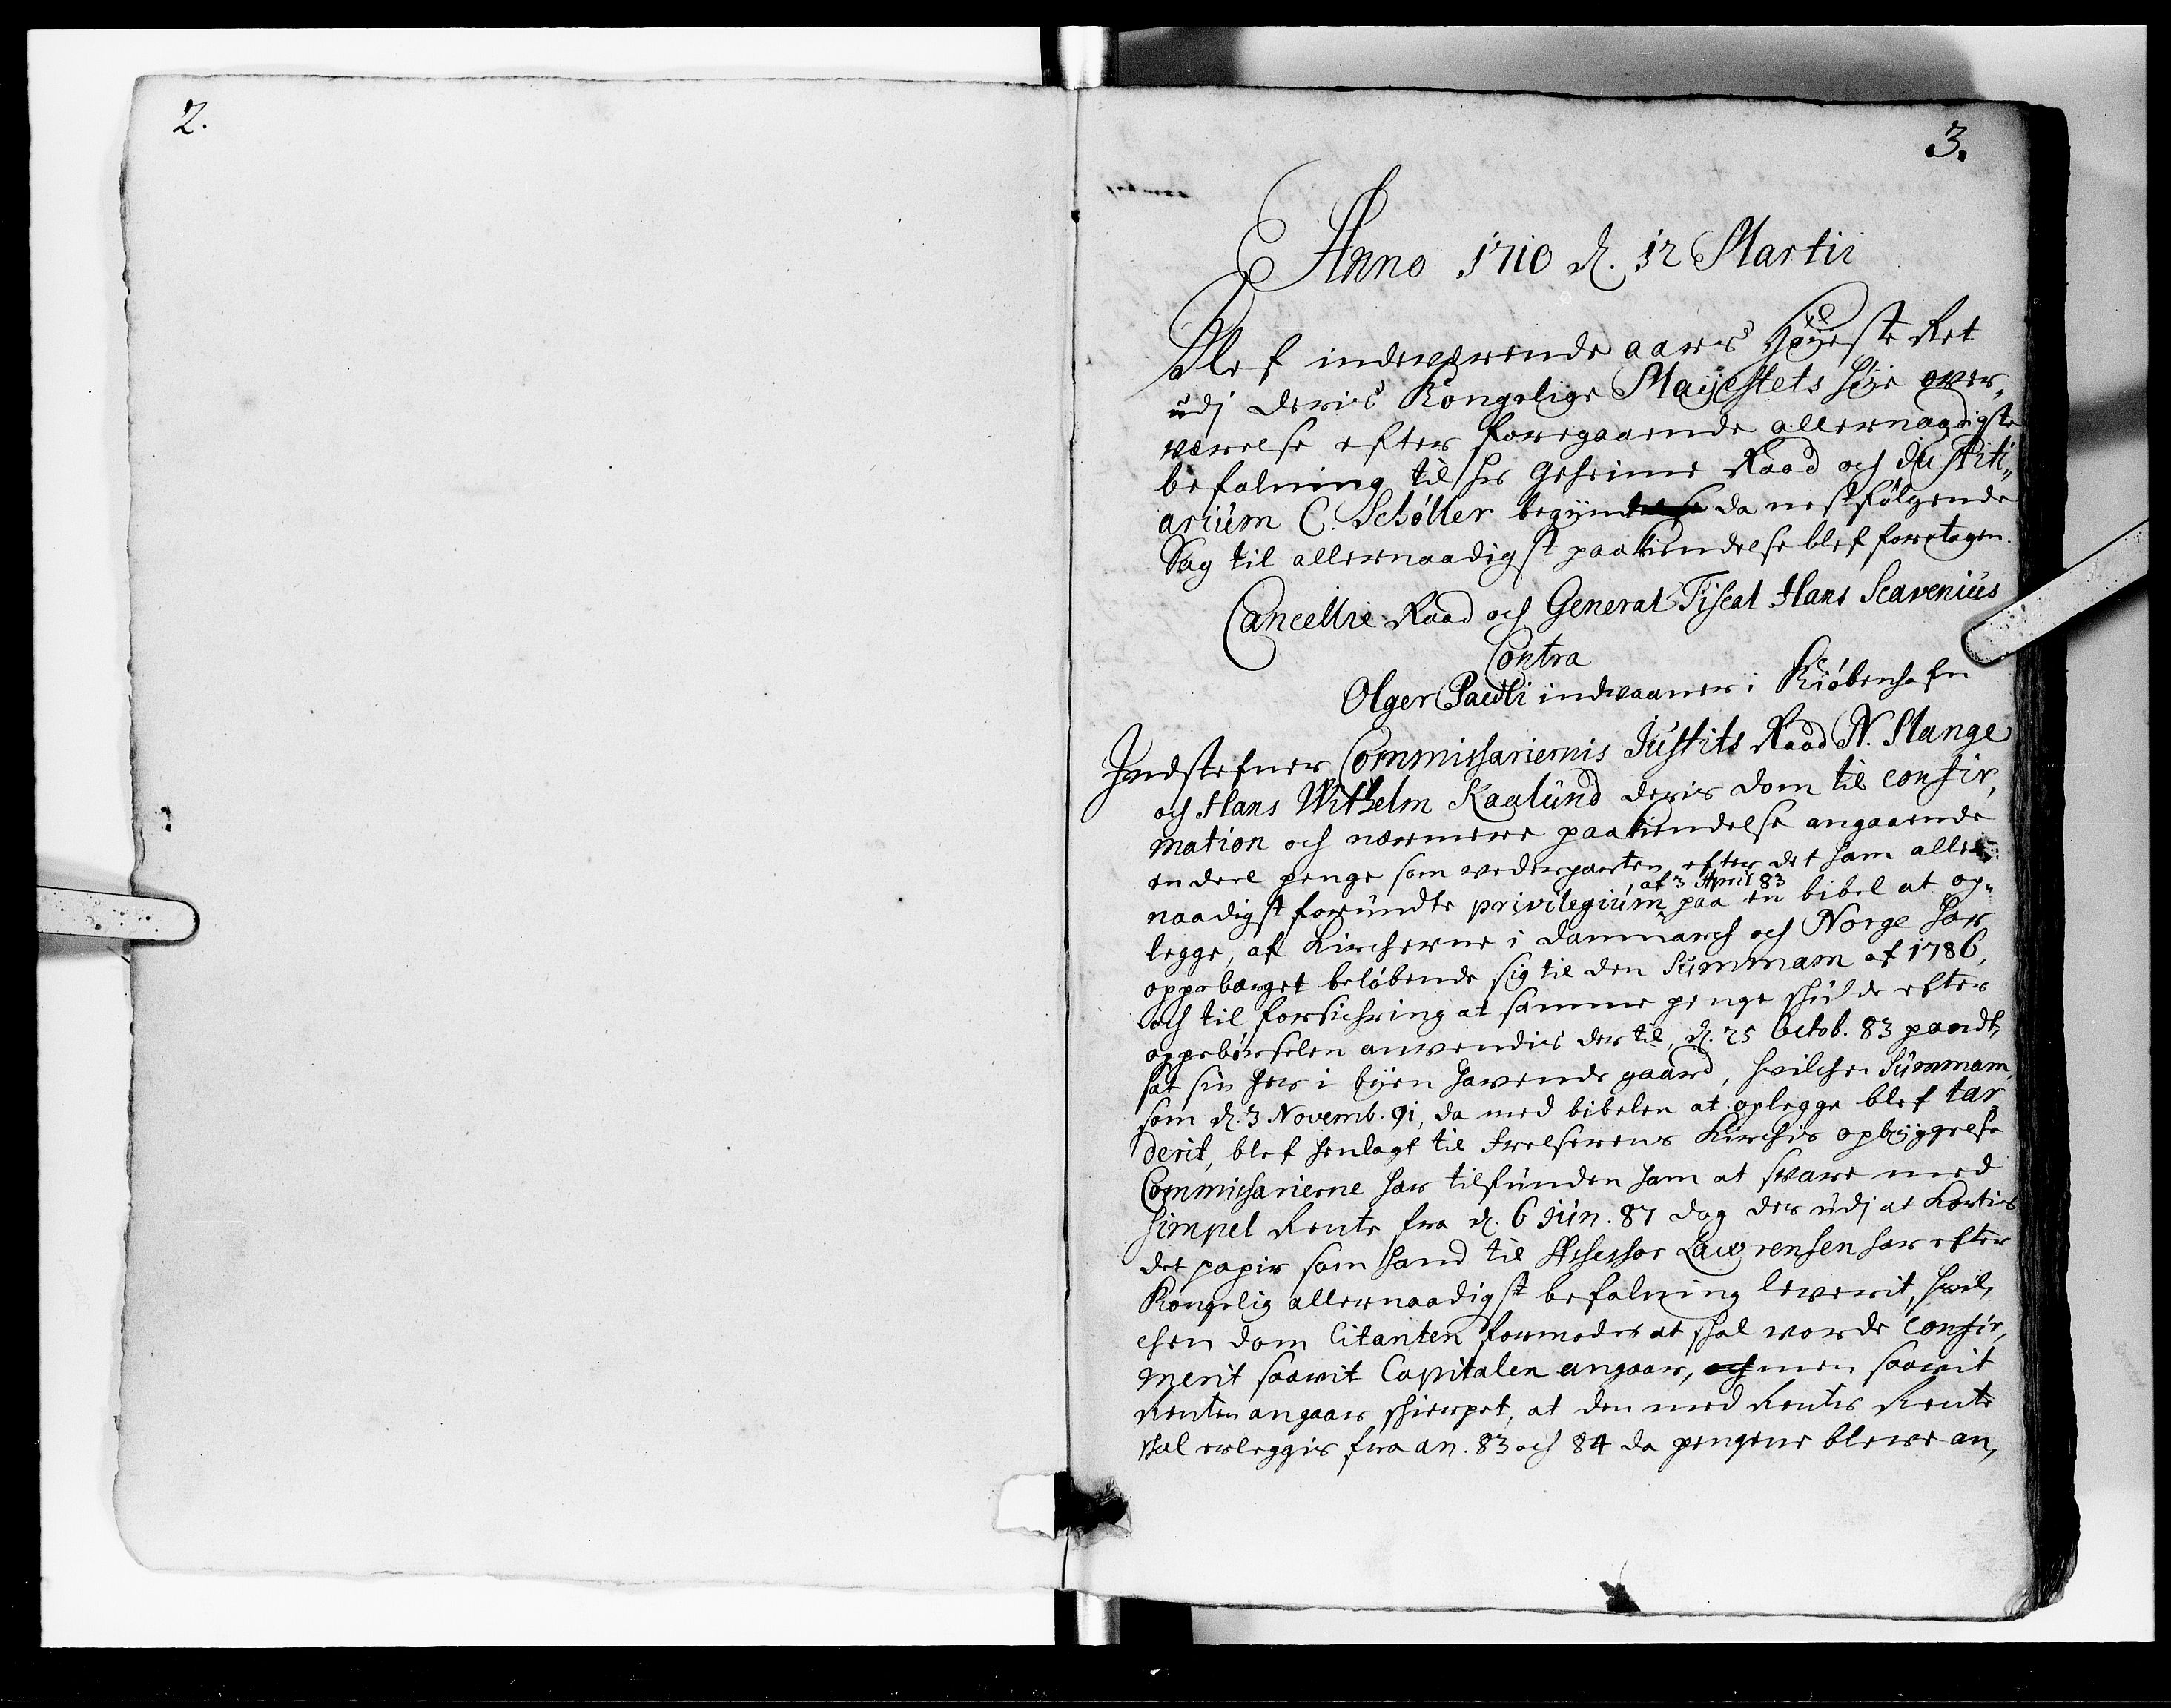 2.
3.
Anno 1710 d. 12 Martii
Blef indeværende aars Höjeste Ret
udj deris Kongelige Mayestets höje over„
værelse efter foregaaende allernaadigste
befalning til hr Geheime Raad och Justiti„
arium C. Schøller begyndt da nestfølgende
Sag til allernaadigst paakiendelse blef foretagen.
Cancellie Raad och General Fiscal Hans Scavenius
Contra
Olger Pauli indvaaner i Kiøbenhafn
Indstefner Commissariernis Justits Raad N. Slange
och Hans Wilhelm Kaalund deris dom til confir,
mation och nærmere paakiendelse angaaende
en deel penge som vederparten efter det ham aller
af 3 April 83
naadigst forundte privilegium paa en bibel at op„
legge, af Kircherne i Danmarch och Norge har
oppebaaret beløbende sig til den Summam af 1786,
och til forsichring at samme penge skulde efter
oppebørselen anvendis der til, d. 25 Octob. 83 pandt,
sat sin her i byen havende gaard, hvilche Summam,
som d. 3 Novemb. 91, da med bibelen at oplegge blef tar„
derit, blef henlagt til Frelserens Kirchis opbyggelse
Commissarierne har tilfunden ham at svare med
simpel Rente fra d. 6 Jun. 87 dog der udj at kortis
det papir som hand til Assessor Laurensen har efter
Kongelig allernaadigst befalning leverit, hvil,
chen dom Citanten formoder at skal vorde confir,
merit saavit Capitalen angaar, men saavit
Renten angaar skierpet, at den med Rentis Rente
skal erleggis fra an. 83 och 84 da pengene bleve an,